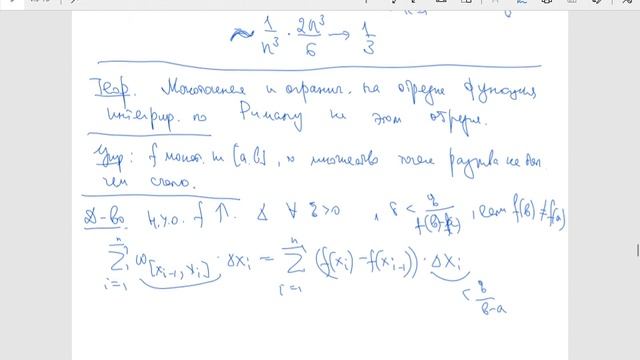 ~ 1/n³ · 2n³/6 → 1/3
Теор. Монотонная и огранич. на отрезке функция
интегрир. по Риману на этом отрезке.
Упр: f монот. на [a,b], то множество точек разрыва не бол.
чем счётно.
Д-во. Н.У.О. f ↑. ∀ ε>0 , δ < ε/f(b)-f(a) , если f(b)≠f(a)
∑ i=1 n ω[xᵢ₋₁, xᵢ] · Δxᵢ = ∑ i=1 n (f(xᵢ) - f(xᵢ₋₁)) · Δxᵢ
< ε/b-a